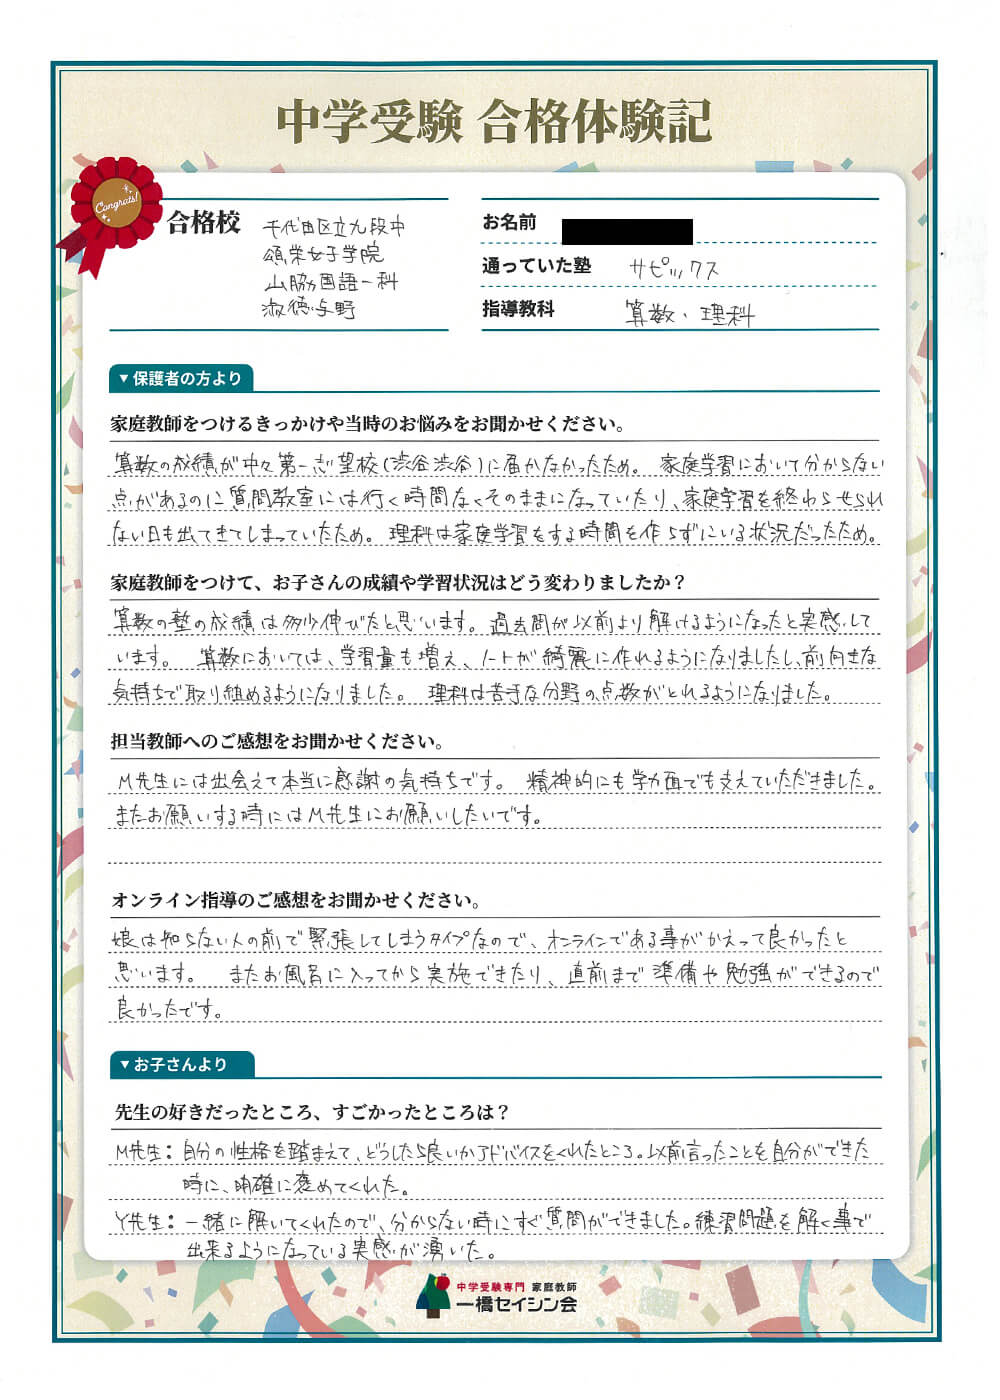 中学受験 合格体験記
Congrats!
合格校
千代田区立九段中
頌栄女子学院
山脇国語一科
淑徳与野
お名前
通っていた塾 サピックス
指導教科 算数・理科
▼保護者の方より
家庭教師をつけるきっかけや当時のお悩みをお聞かせください。
算数の成績が中々第一志望校(渋谷渋谷)に届かなかったため。 家庭学習において分からない
点があるのに質問教室には行く時間なくそのままになっていたり、家庭学習を終わらせられ
ない日も出てきてしまっていたため。理科は家庭学習をする時間を作らずにいる状況だったため。
家庭教師をつけて、お子さんの成績や学習状況はどう変わりましたか？
算数の塾の成績は多少伸びたと思います。過去問が以前より解けるようになったと実感して
います。 算数においては、学習量も増え、ノートが綺麗に作れるようになりましたし、前向きな
気持ちで取り組めるようになりました。 理科は苦手な分野の点数がとれるようになりました。
担当教師へのご感想をお聞かせください。
M先生には出会えて本当に感謝の気持ちです。 精神的にも学力面でも支えていただきました。
またお願いする時にはM先生にお願いしたいです。
オンライン指導のご感想をお聞かせください。
娘は知らない人の前で緊張してしまうタイプなので、オンラインである事がかえって良かったと
思います。 またお風呂に入ってから実施できたり、直前まで準備や勉強ができるので
良かったです。
▼お子さんより
先生の好きだったところ、すごかったところは？
M先生：自分の性格を踏まえて、どうしたら良いかアドバイスをくれたところ。以前言ったことを自分ができた
時に、明確に褒めてくれた。
Y先生：一緒に解いてくれたので、分からない時にすぐ質問ができました。練習問題を解く事で
出来るようになっている実感が湧いた。
中学受験専門 家庭教師
一橋セイシン会